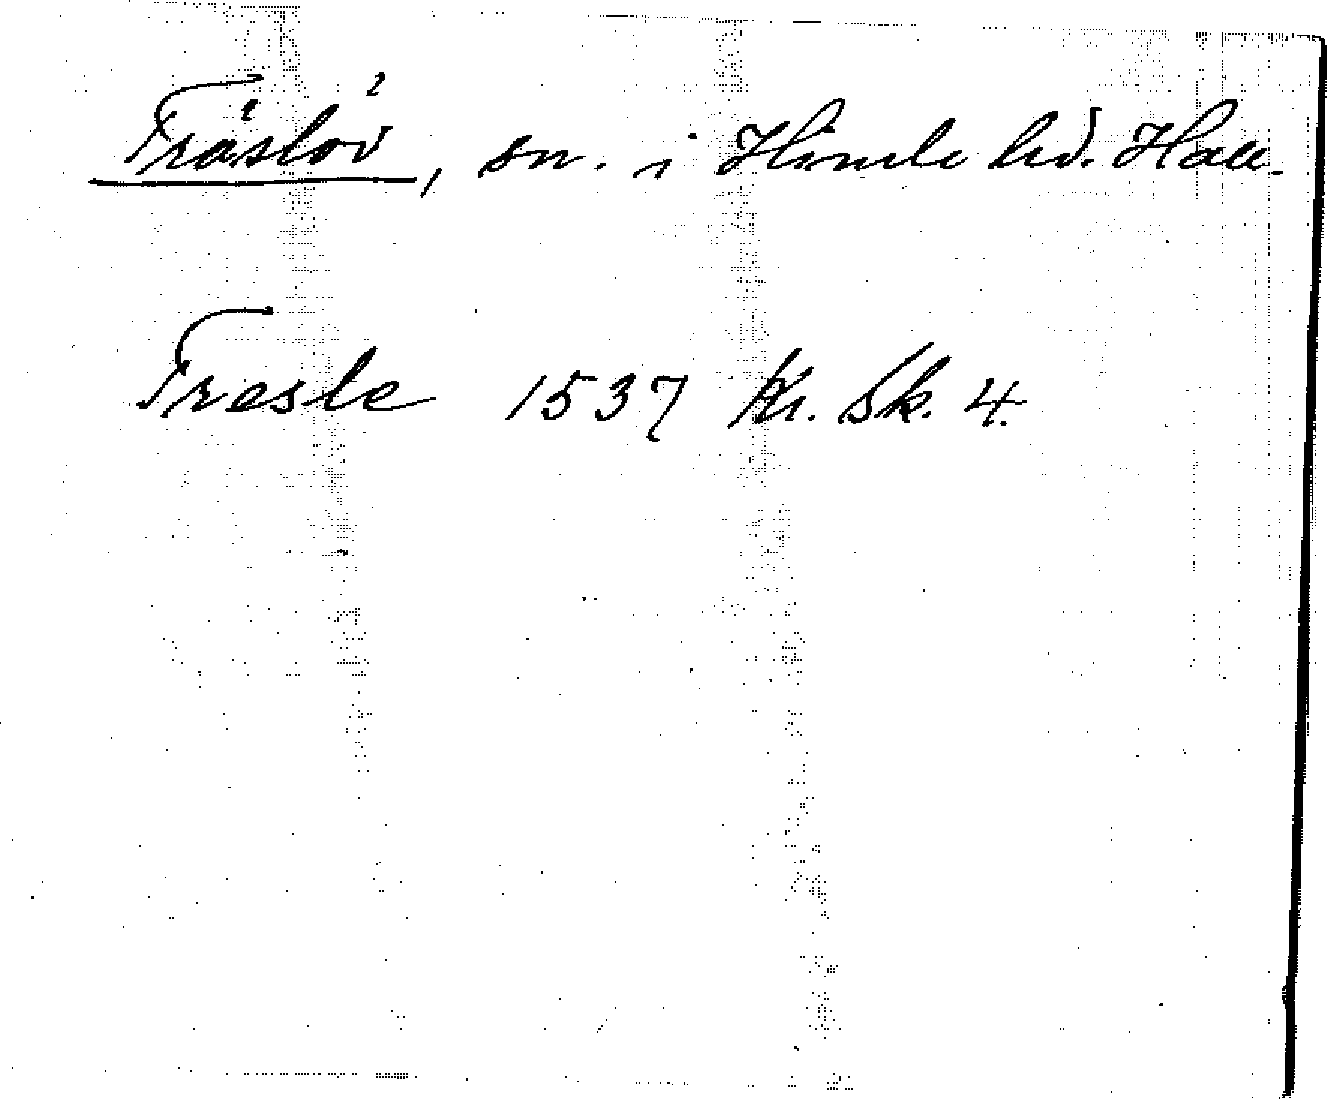 Träslöv, sn. i Himle hd. Hall.
Tresle 1537 Kr. Sk. 4.